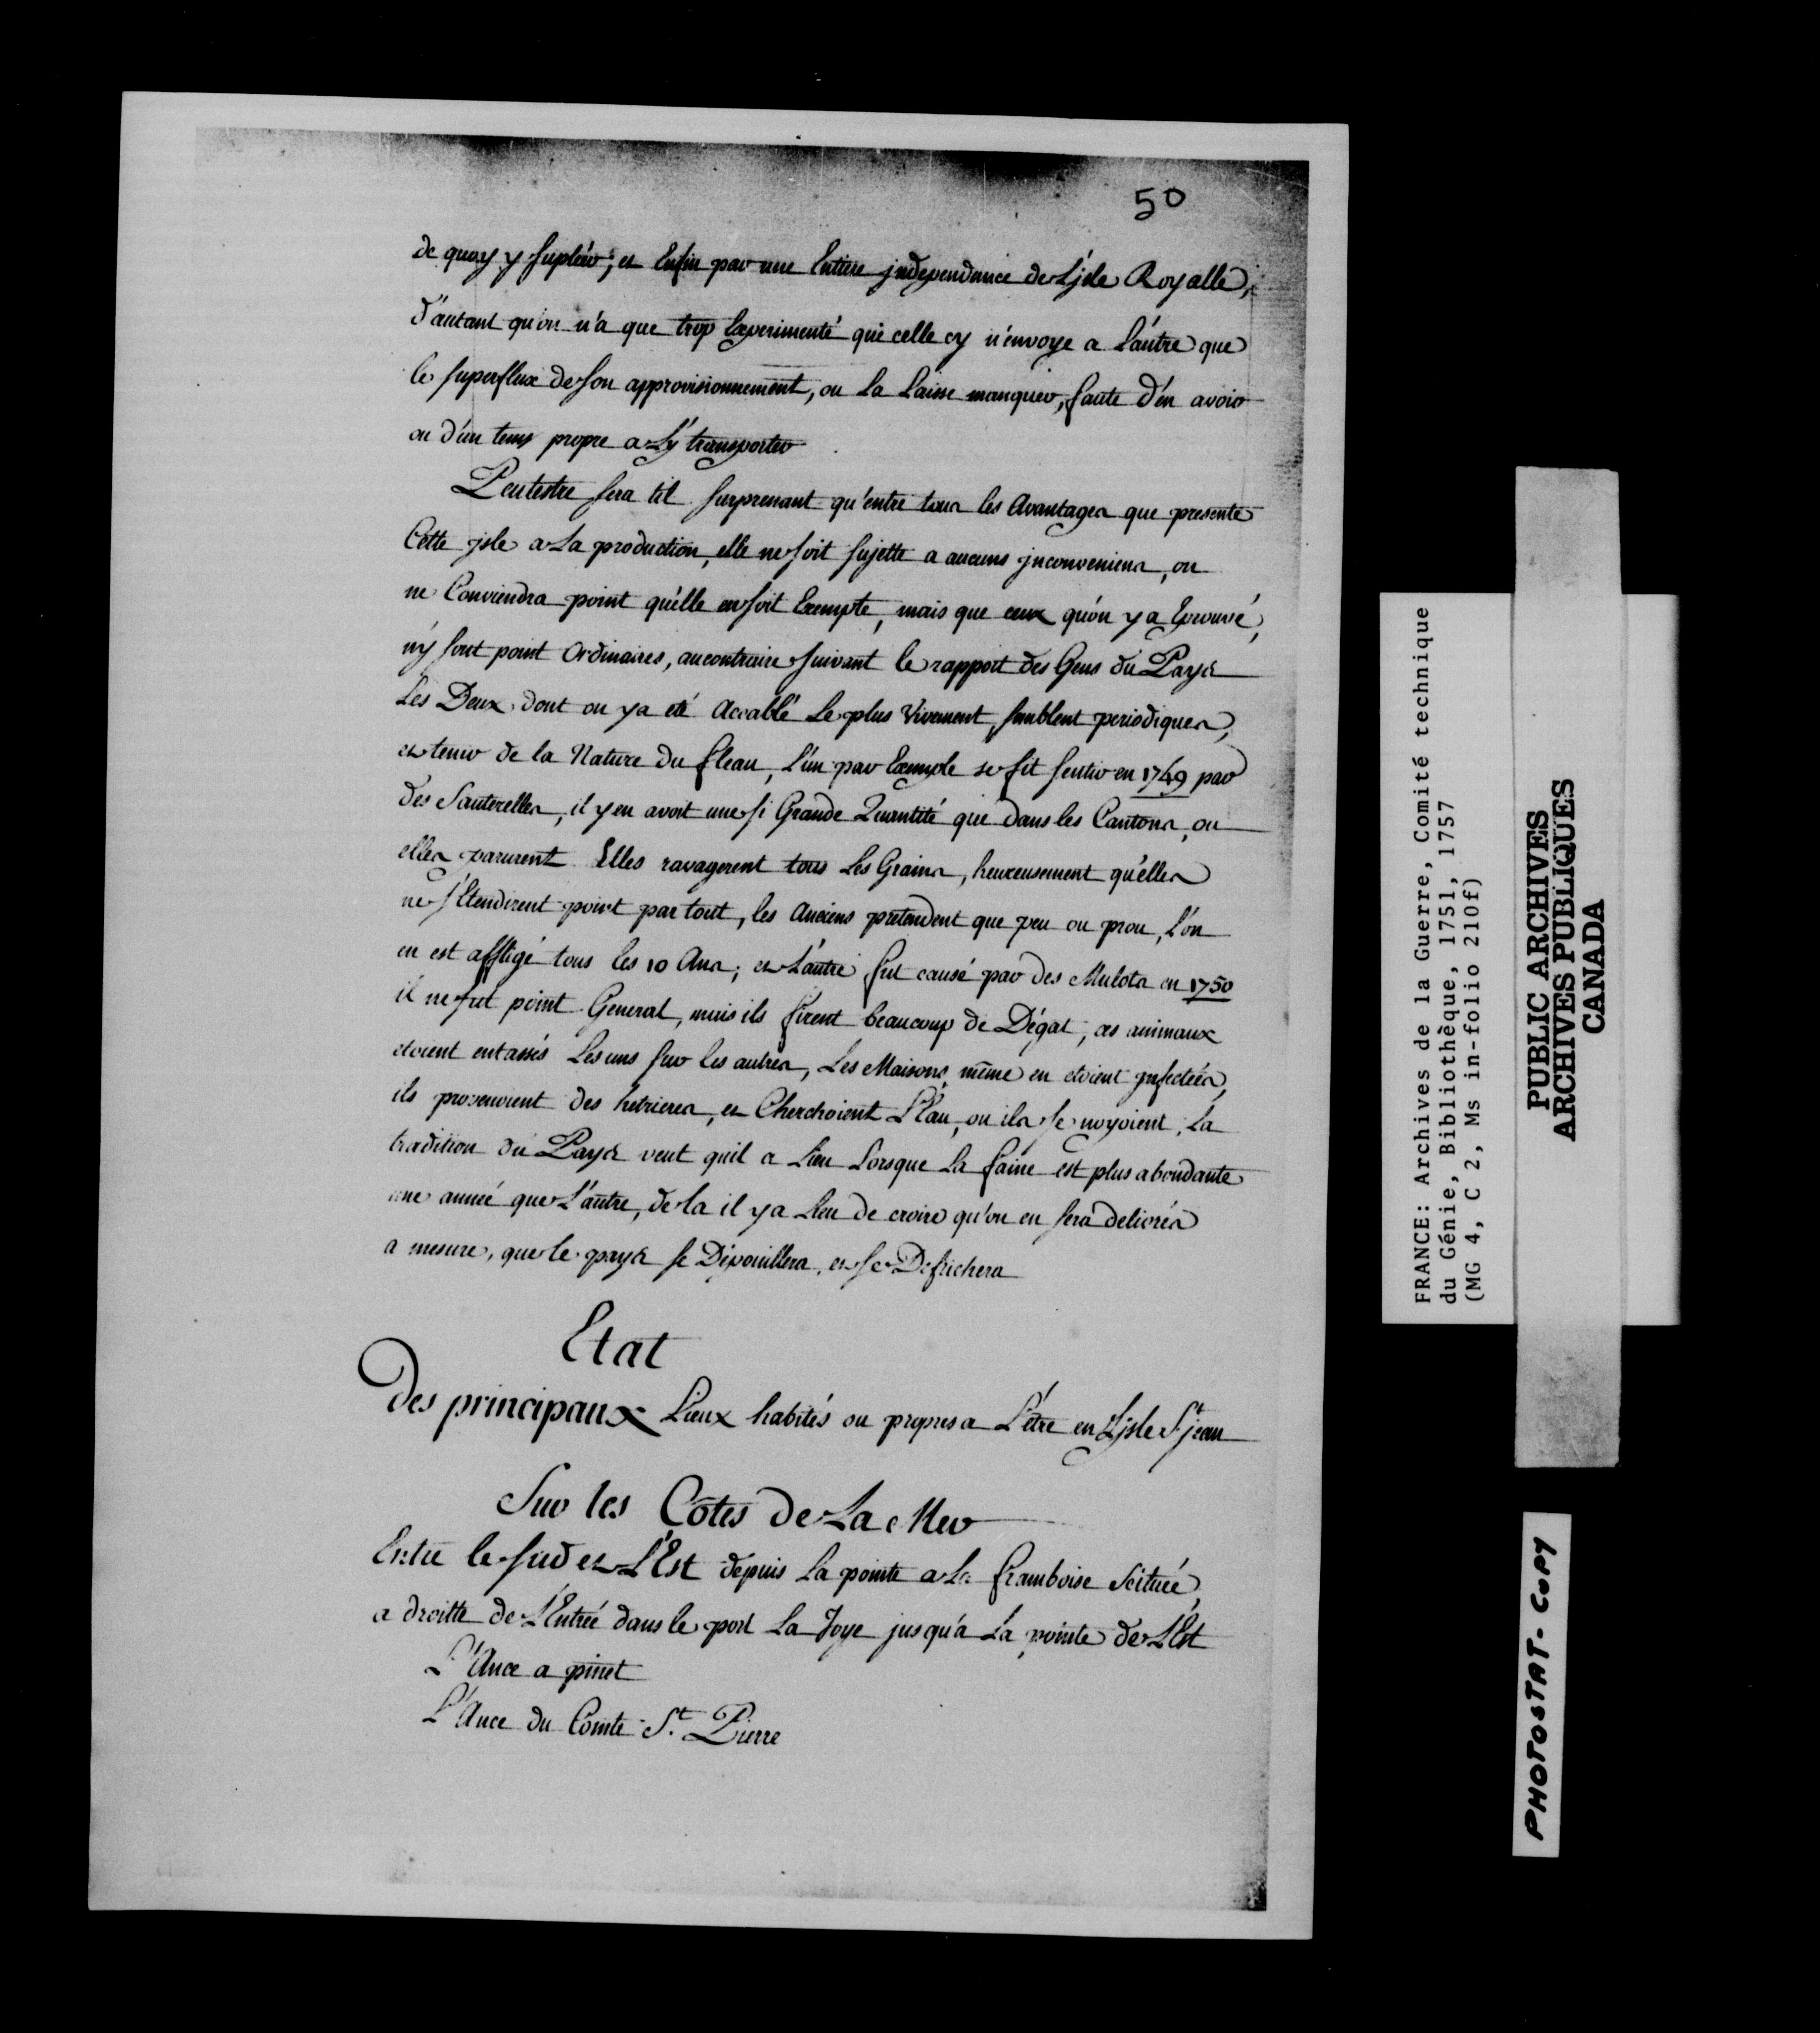 50
de quoy y supléer; et Enfin par une Entiere jndependance de L'jsle Royalle,
d'autant qu'on n'a que trop Experimenté que celle cy n'envoye a L'autre que
le superflux de son approvisionnement, ou La Laisse manquer, faute d'en avoir
ou d'un tems propre a L'y transporter
Peutestre sera til surprenant qu'entre tous les Avantages que presente
Cette jsle a La production, elle ne soit sujette a aucuns jnconveniens, on
ne Conviendra point qu'elle en soit Exempte, mais que ceux qu'on y a Eprouvé,
n'y sont point Ordinaires, aucontraire suivant le rapport des Gens du Pays
Les Deux dont on y a eté Accablé Le plus Vivement, semblent periodiques,
et tenir de la Nature du fleau, L'un par Exemple se fit sentir en 1749 par
des Sauterelles, il y en avoit une si Grande Quantité que dans les Cantons, ou
elles parurent Elles ravagerent tous Les Grains, heureusement qu'elles
ne s'Etendirent point par tout, les Anciens pretendent que peu ou prou, L'on
en est affligé tous les 10 Ans; et L'autre fut causé par des Mulots en 1750
il ne fut point General, mais ils firent beaucoup de Dégat, ces animaux
etoient entassés Les uns sur les autres, Les Maisons même en etoient jnfectées,
ils provenoient des hetrieres, et Cherchoient L'Eau, ou ils se noyoient, La
tradition du Pays veut quil a Lieu Lorsque La faine est plus abondante
une année que L'autre, de la il y a Lieu de croire qu'on en sera delivrés
a mesure, que le pays se Dépouillera, et se Defrichera
Etat
Des principaux Lieux habités ou propres a L'être en L'jsle St jean
Sur les Côtes de La Mer
Entre le sud et L'Est depuis La pointe a La framboise Scituée,
a droitte de L'Entrée dans le port La Joye jusqu'a La pointe de L'Est
L'Ance a pinet
L'Ance du Comte St. Pierre
FRANCE: Archives de la Guerre, Comité technique
du Génie, Bibliothèque, 1751, 1757
(MG 4, C 2, Ms in-folio 210f)
PUBLIC ARCHIVES
ARCHIVES PUBLIQUES
CANADA
PHOTOSTAT-COPY